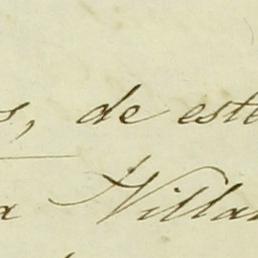 s, de este
a Villar